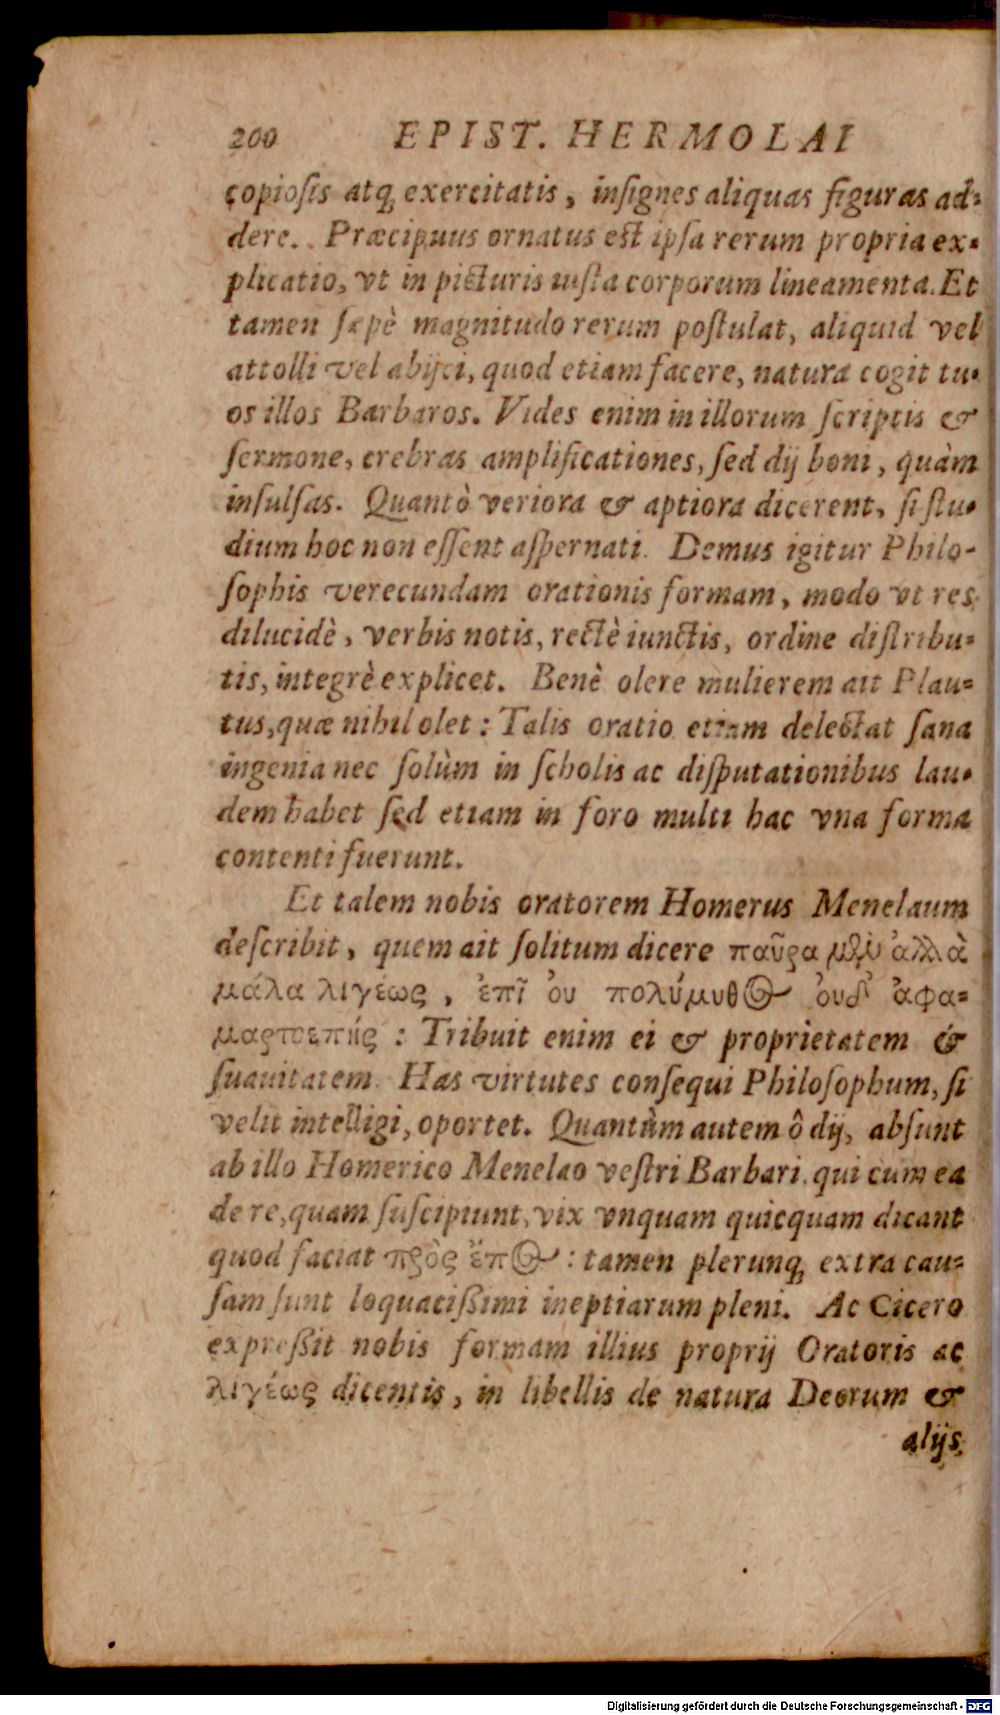 200 EPIST. HERMOLAI
copiosis atq; exercitatis, insignes aliquas figuras ad-
dere. Præcipuus ornatus est ipsa rerum propria ex-
plicatio, vt in picturis iusta corporum lineamenta. Et
tamen sæpè magnitudo rerum postulat, aliquid vel
attolli vel abijci, quod etiam facere, natura cogit tu-
os illos Barbaros. Vides enim in illorum scriptis &
sermone, crebras amplificationes, sed dij boni, quàm
insulsas. Quantò veriora & aptiora dicerent, si stu-
dium hoc non essent aspernati. Demus igitur Philo-
sophis verecundam orationis formam, modo vt res
dilucidè, verbis notis, rectè iunctis, ordine distribu-
tis, integrè explicet. Benè olere mulierem ait Plau-
tus, quæ nihil olet: Talis oratio etiam delectat sana
ingenia nec solùm in scholis ac disputationibus lau-
dem habet sed etiam in foro multi hac vna forma
contenti fuerunt.
Et talem nobis oratorem Homerus Menelaum
describit, quem ait solitum dicere παῦρα μὲν ἀλλὰ
μάλα λιγέως, ἐπῖ ὀυ πολύμυθος ὀυδ' ἀφα-
μαρτοεπής: Tribuit enim ei & proprietatem &
suauitatem. Has virtutes consequi Philosophum, si
velit intelligi, oportet. Quantùm autem ô dij, absunt
ab illo Homerico Menelao vestri Barbari. qui cum ea
de re, quam suscipiunt, vix vnquam quicquam dicant
quod faciat πρὸς ἔπος: tamen plerunq; extra cau-
sam sunt loquacißimi ineptiarum pleni. Ac Cicero
expreßit nobis formam illius proprij Oratoris ac
λιγέως dicentis, in libellis de natura Deorum &
alijs
Digitalisierung gefördert durch die Deutsche Forschungsgemeinschaft - DFG